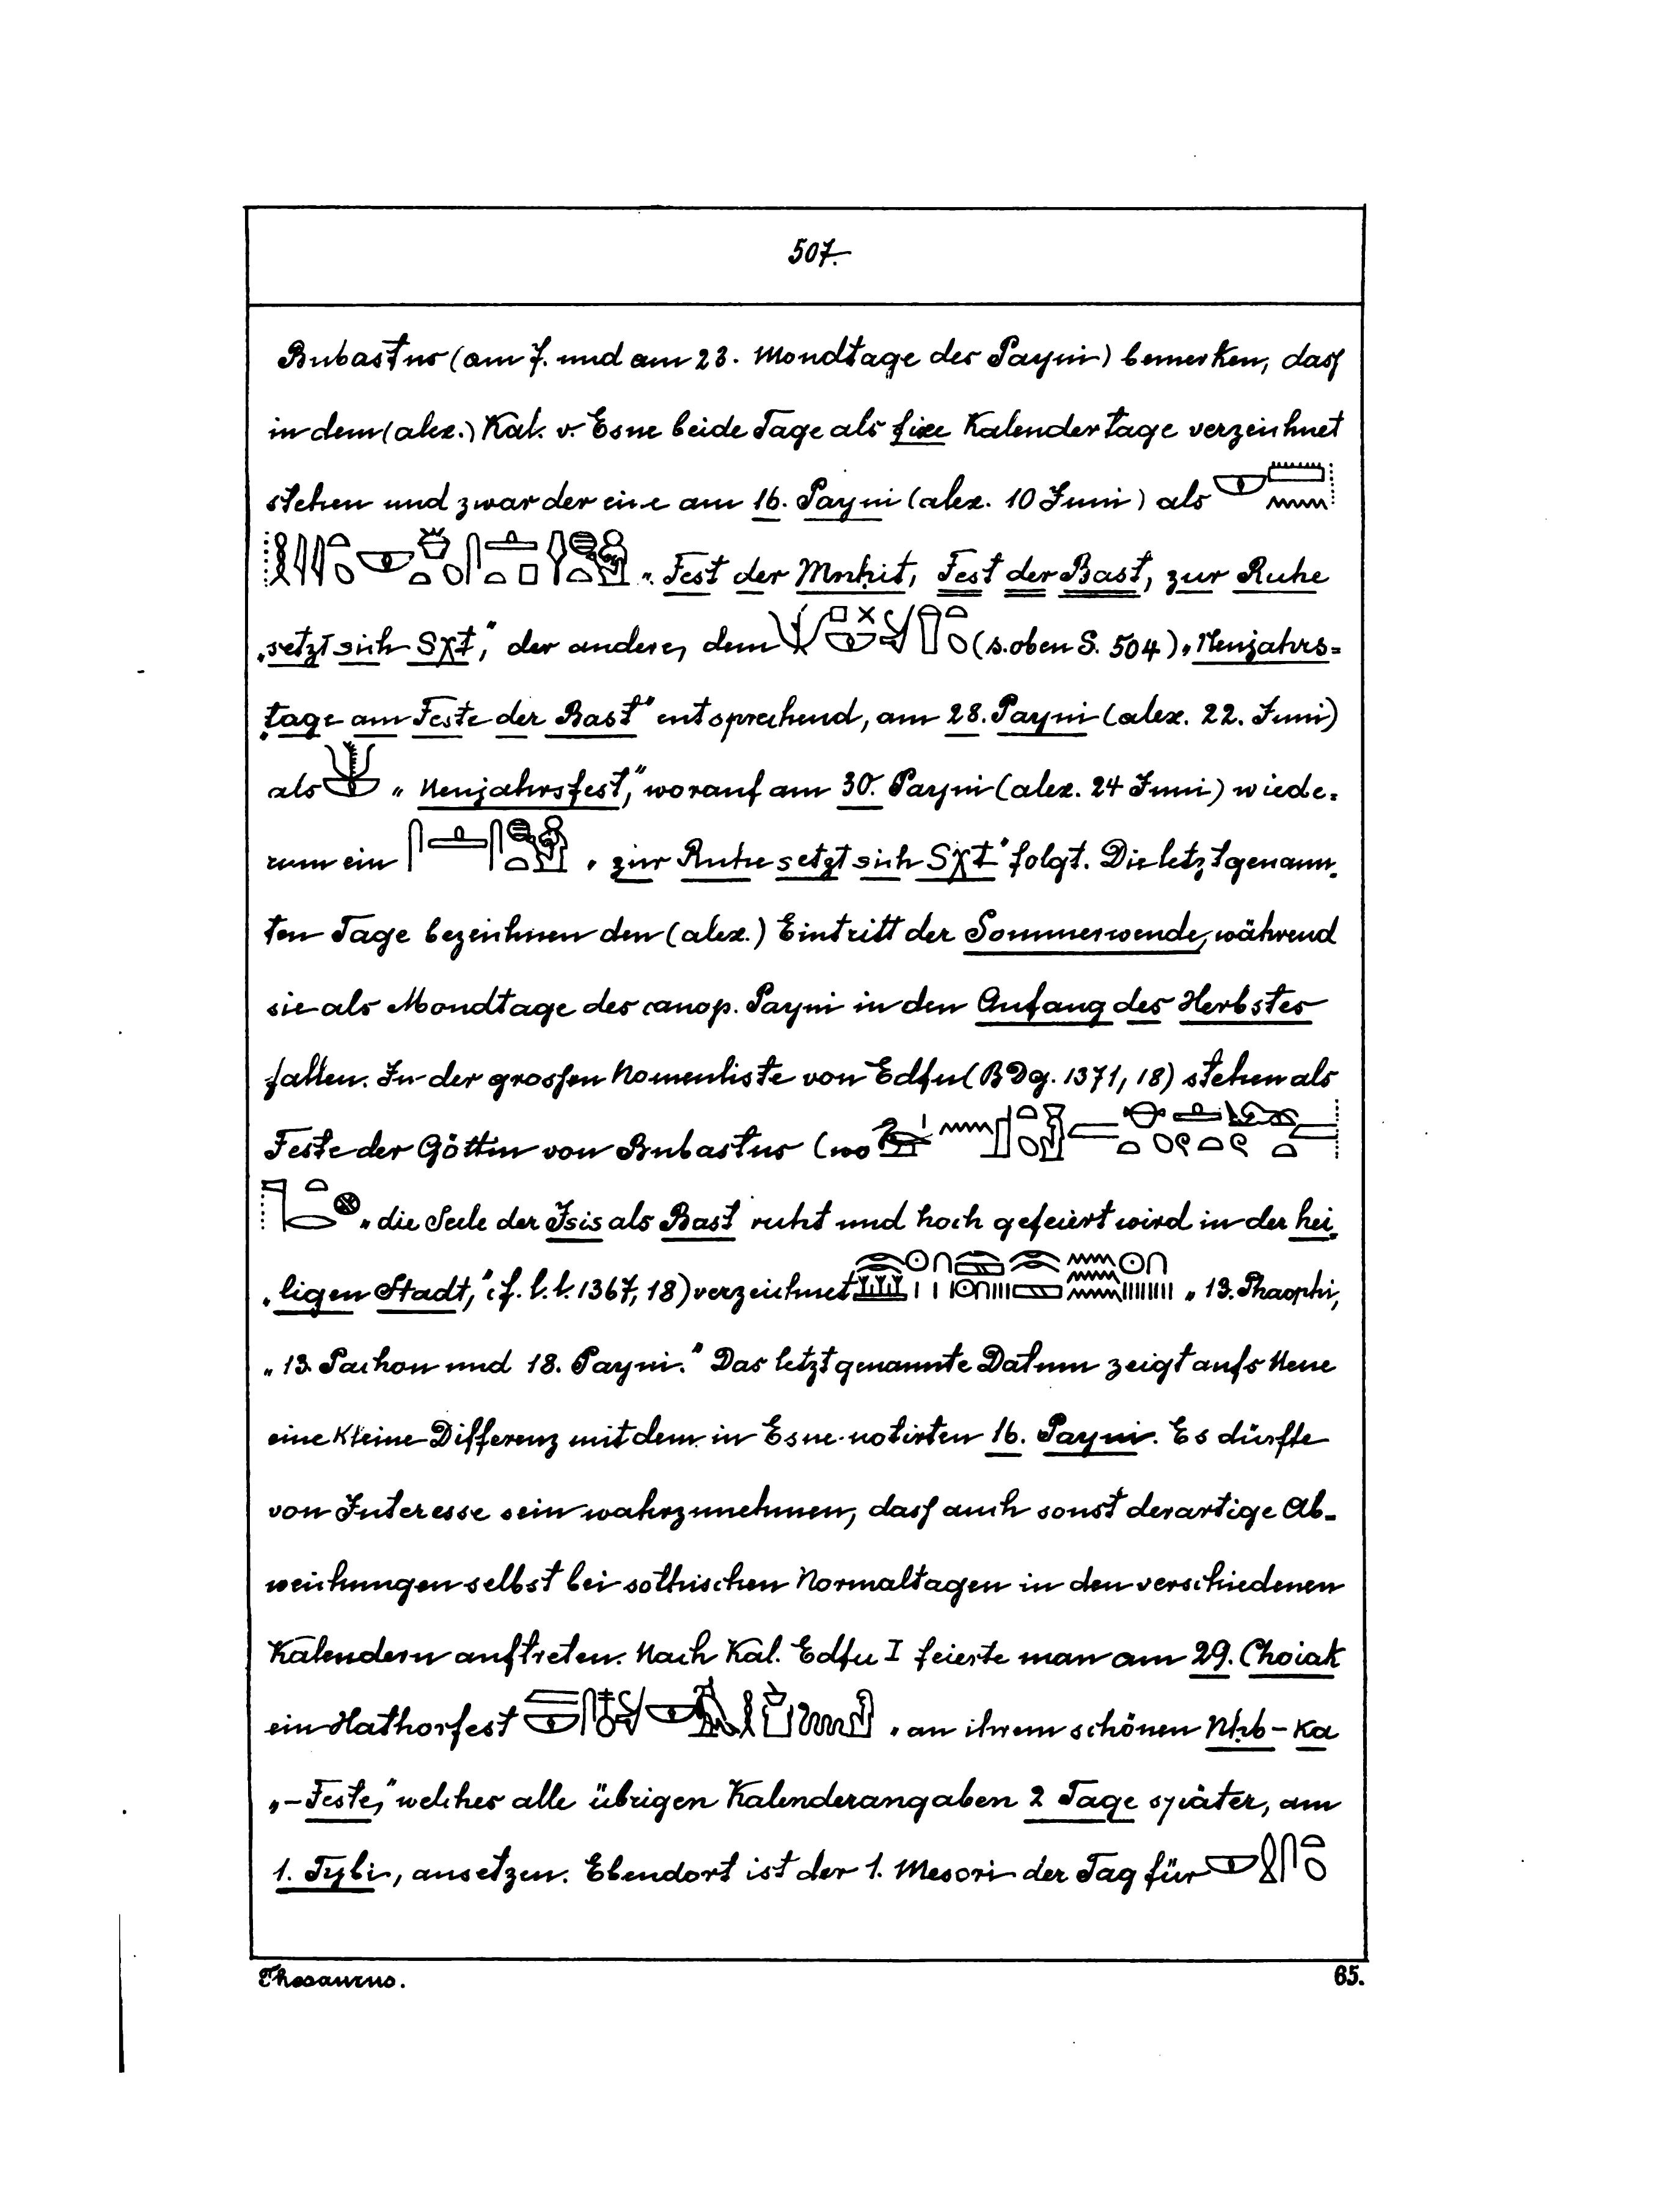 507.
Bubastus (am 7. und am 23. Mondtage des Payni) bemerken, dass
in dem (alex.) Kal. v. Esne beide Tage als fixe Kalendertage verzeichnet
stehen und zwar der eine am 16. Payni (alex. 10 Juni) als
„Fest der Mnḥit, Fest der Bast, zur Ruhe
„setzt sich Sχt,“ der andere, dem (s. oben S. 504) „Neujahrs=
„tage am Feste der Bast“ entsprechend, am 28. Payni (alex. 22. Juni)
als „Neujahrsfest,“ worauf am 30. Payni (alex. 24 Juni) wiede=
rum ein „zur Ruhe setzt sich Sχt“ folgt. Die letztgenann-
ten Tage bezeichnen den (alex.) Eintritt der Sommerwende, während
sie als Mondtage des canop. Payni in den Anfang des Herbstes
fallen. In der grossen Nomenliste von Edfu (BDg. 1371, 18) stehen als
Feste der Göttin von Bubastus (wo
„die Seele der Isis als Bast ruht und hoch gefeiert wird in der hei-
„ligen Stadt,“ cf. l. l. 1367, 18) verzeichnet „13. Phaophi,
„13. Pachon und 18. Payni.“ Das letztgenannte Datum zeigt aufs Neue
eine kleine Differenz mit dem in Esne notirten 16. Payni. Es dürfte
von Interesse sein wahrzunehmen, dass auch sonst derartige Ab-
weichungen selbst bei sothischen Normaltagen in den verschiedenen
Kalendern auftreten. Nach Kal. Edfu I feierte man am 29. Choiak
ein Hathorfest „an ihrem schönen Nḥb-ka
„-Feste,“ welches alle übrigen Kalenderangaben 2 Tage später, am
1. Tybi, ansetzen. Ebendort ist der 1. Mesori der Tag für
Thesaurus. 65.